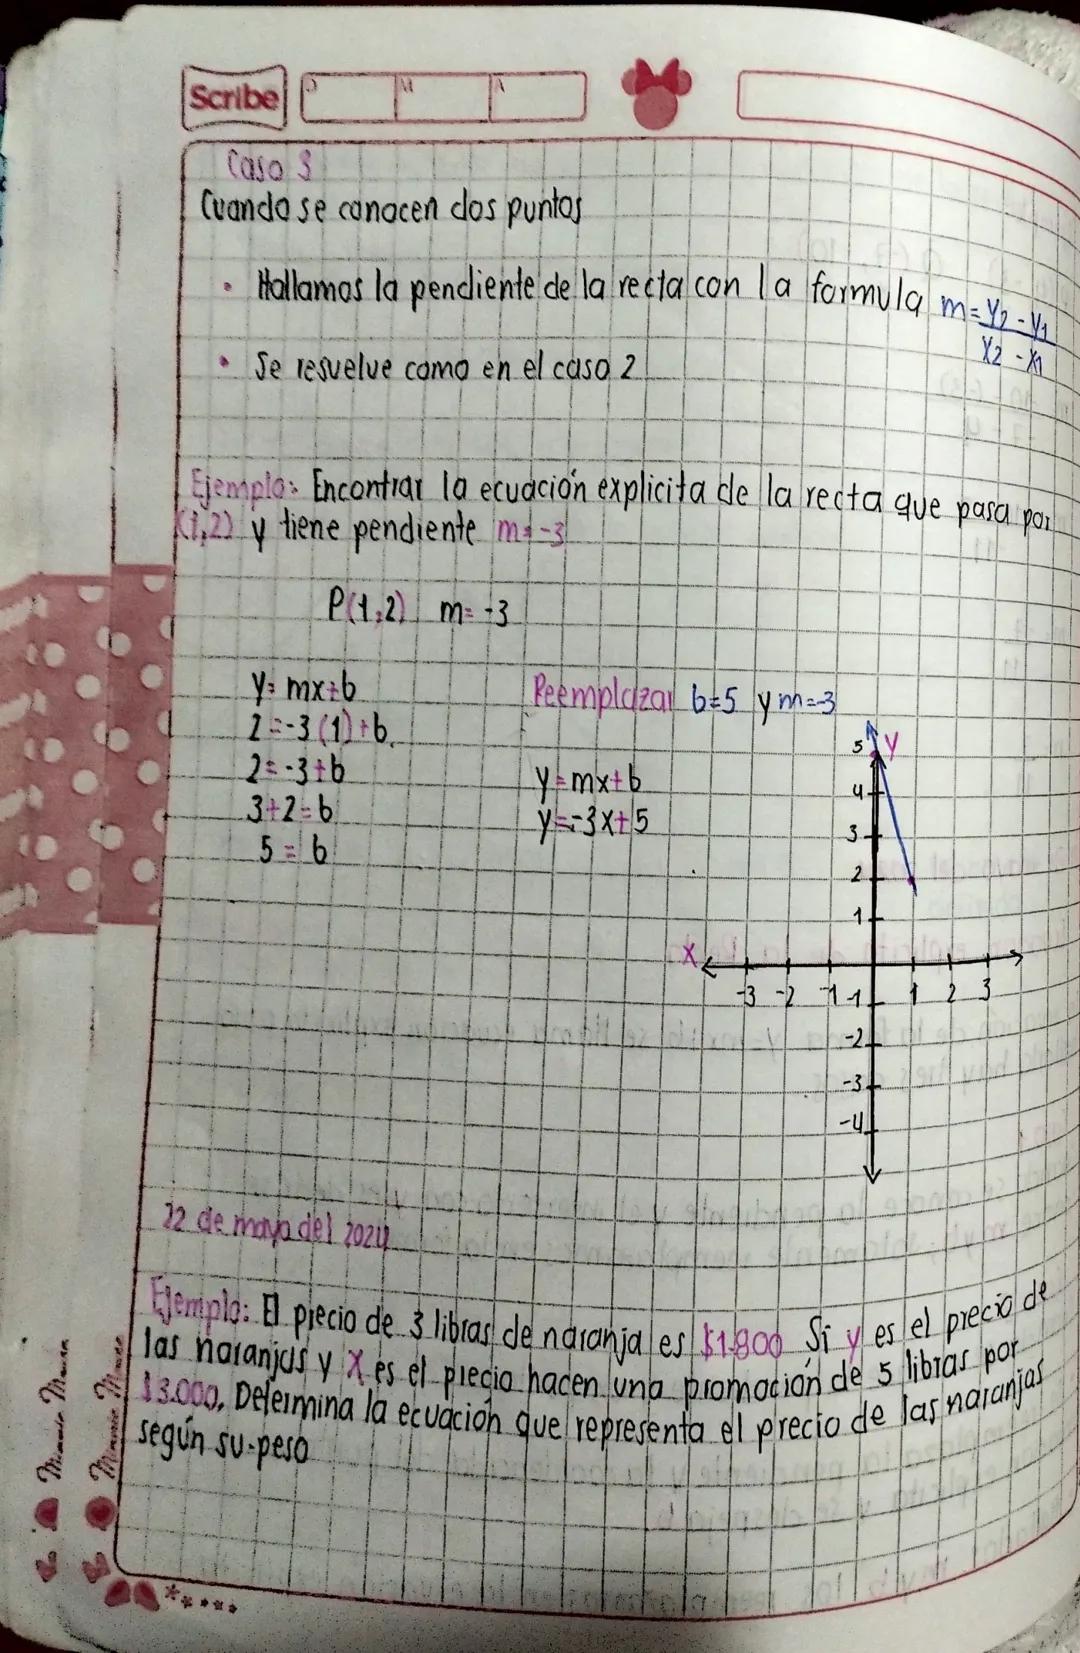 Scribe
D M A
Caso 3
Cuando se conocen dos puntos
• Hallamos la pendiente de la recta con la formula m = y2 - y1
x2 - x1
• Se resuelve como en el caso 2
Ejemplo: Encontrar la ecuación explicita de la recta que pasa por
(1,2) y tiene pendiente m = -3
P(1,2) m = -3
y = mx+b
2 = -3(1)+b
2 = -3+b
3+2 = b
5 = b
Reemplazar b=5 y m=-3
y = mx+b
y = -3x+5
5 y
4
3
2
1
x
-3 -2 -1 -1 1 2 3
-2
-3
-4
22 de mayo del 2024
Ejemplo: El precio de 3 libras de naranja es $1.800 Si y es el precio de
las naranjas y X es el precio hacen una promoción de 5 libras por
$3.000. Determina la ecuación que representa el precio de las naranjas
según su peso
Minnie Mouse
Minnie Mouse